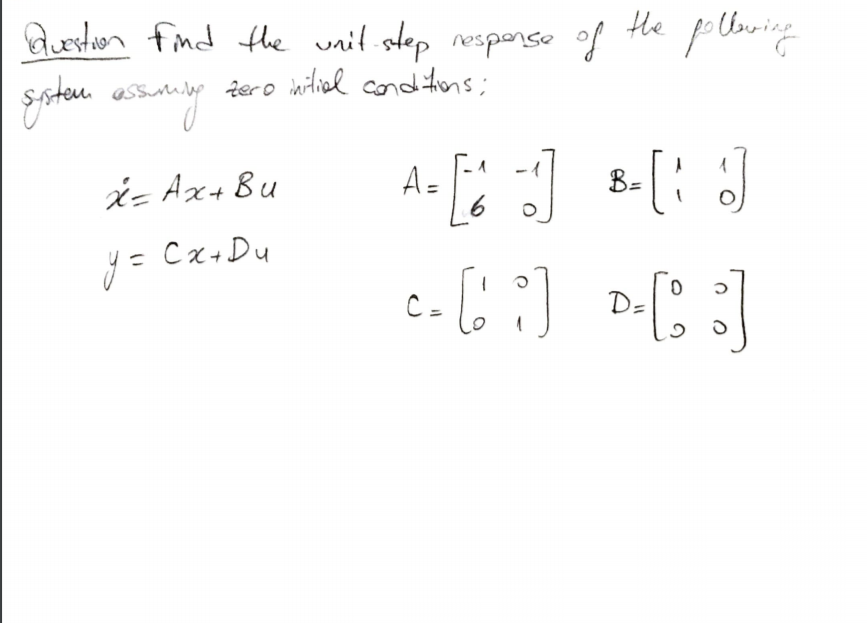 Question Find the unit-step response of the following
system assuming zero initial conditions;
ẋ = Ax + Bu A = [-1 -1; 6 0] B = [1 1; 1 0]
y = Cx + Du C = [1 0; 0 1] D = [0 0; 0 0]